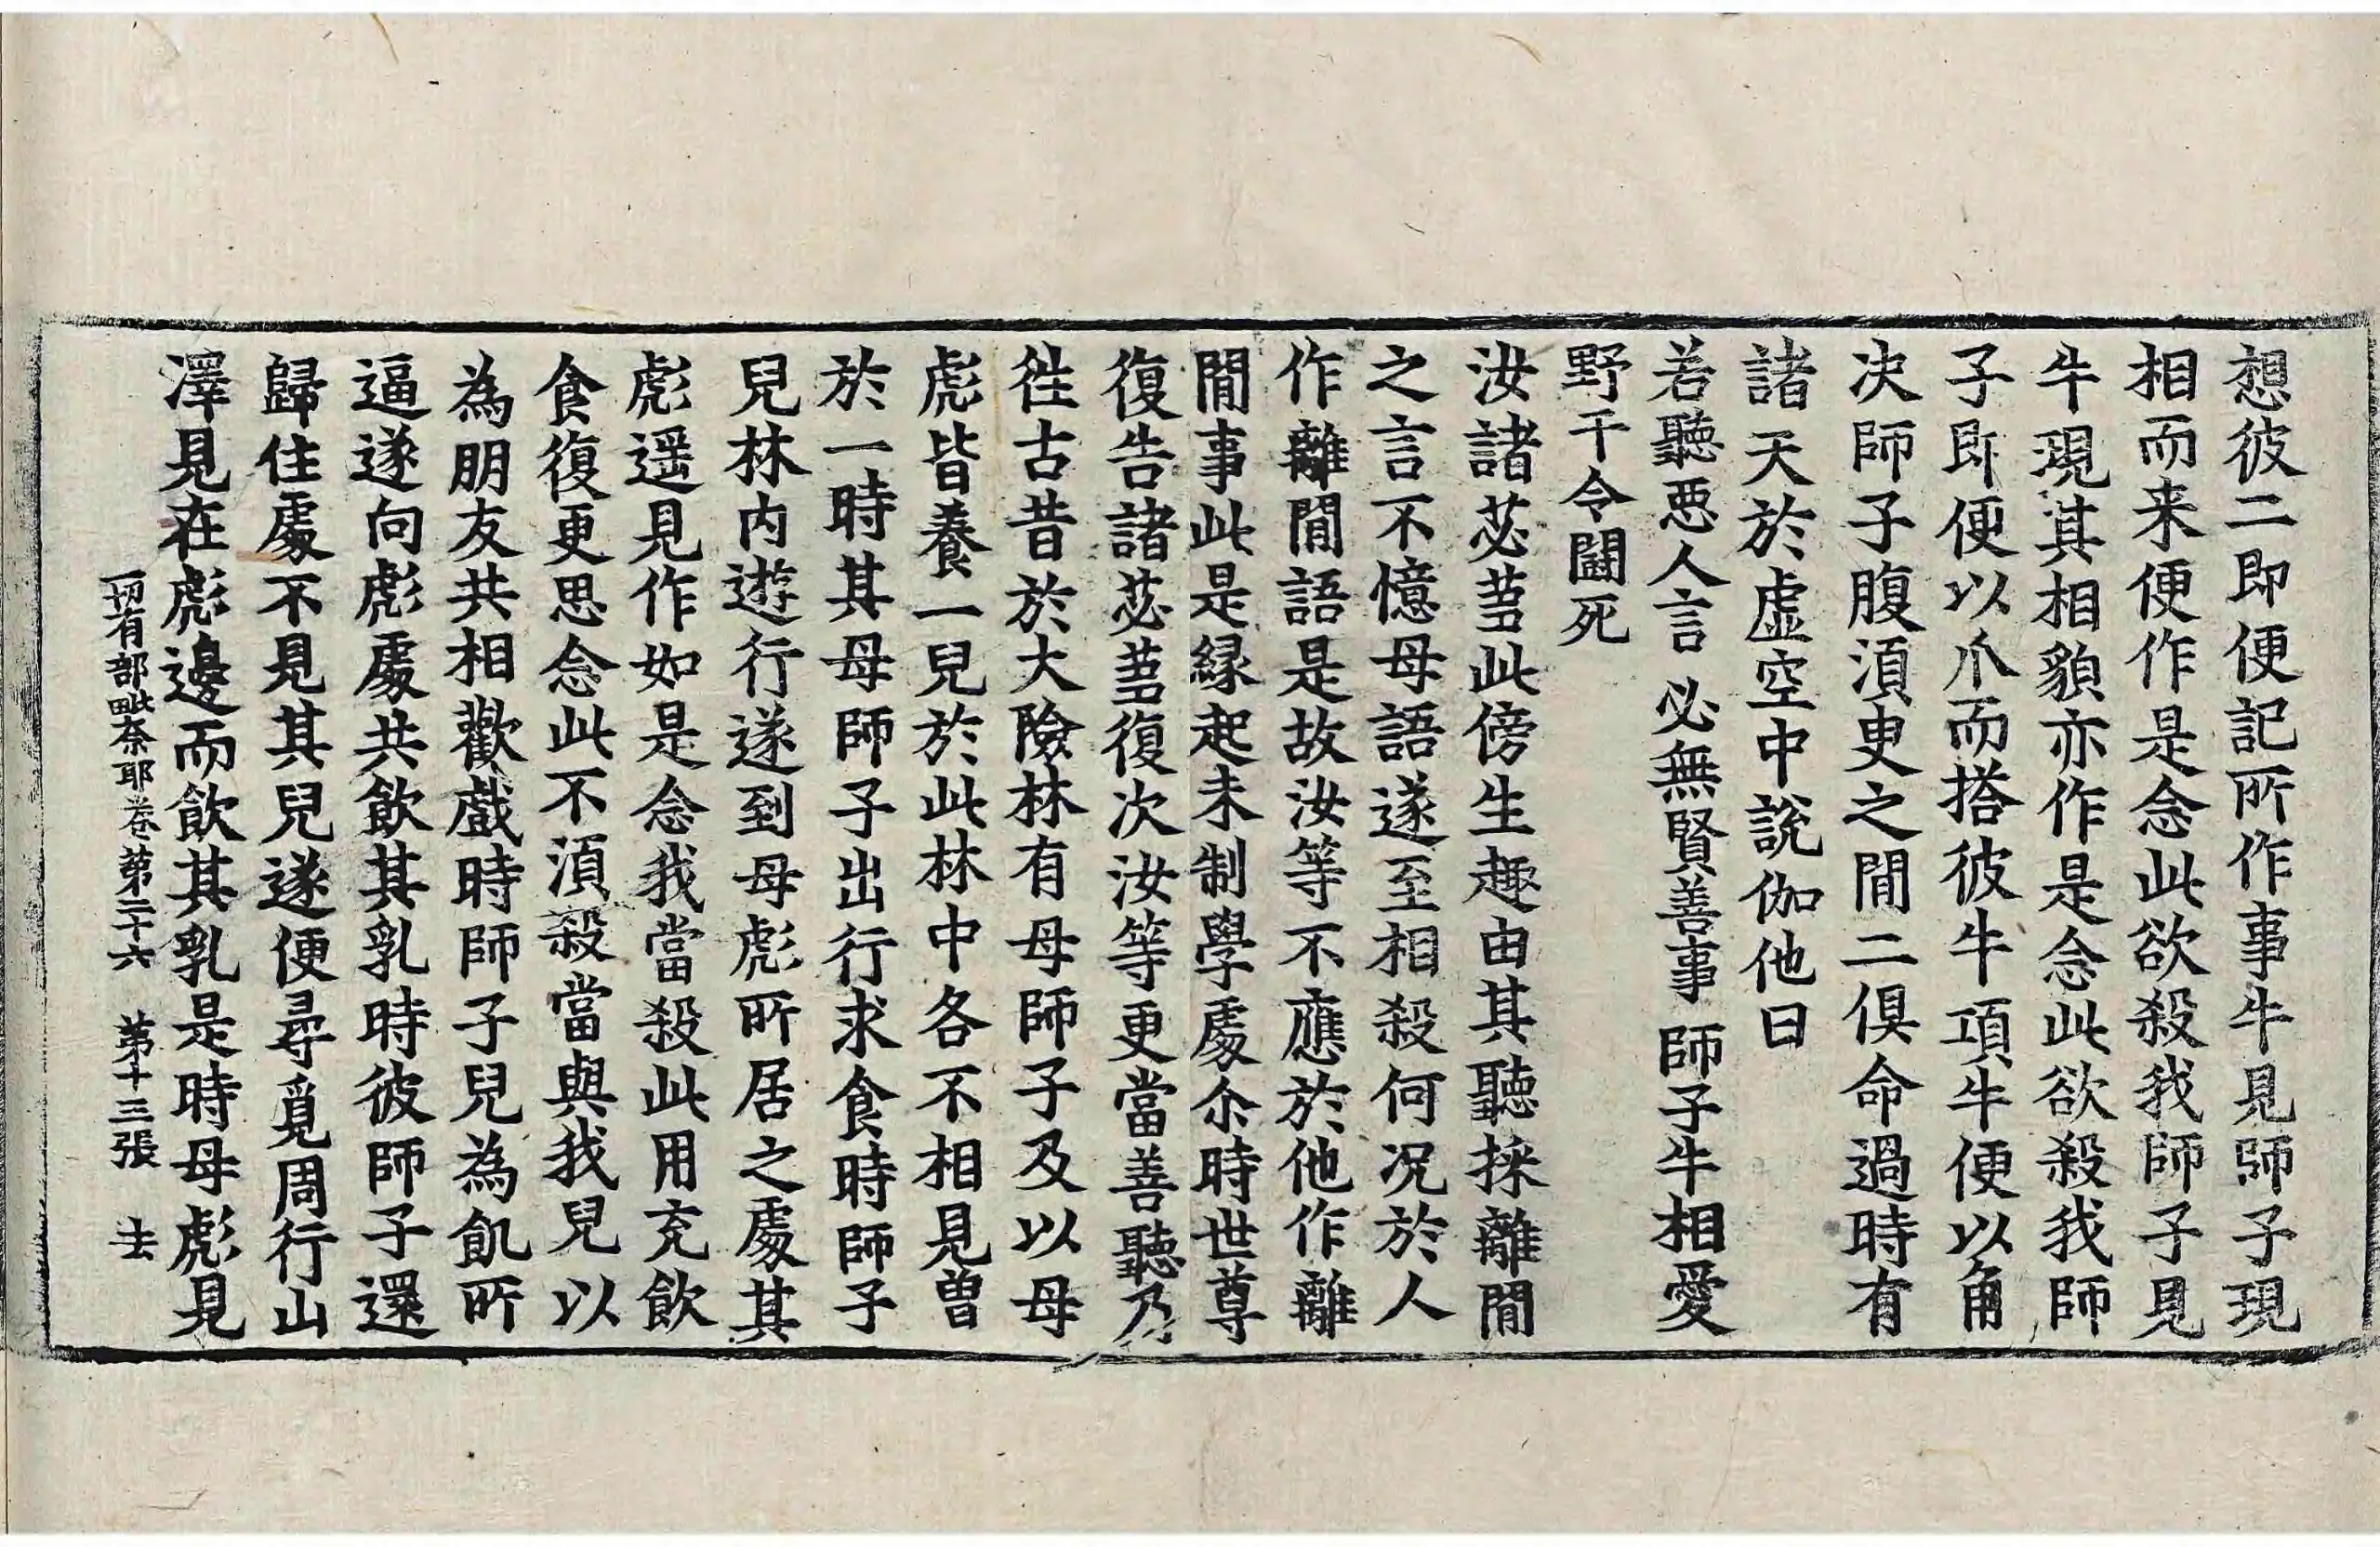 想彼二即便記所作事牛見師子現
相而来便作是念此欲殺我師子見
牛現其相貌亦作是念此欲殺我師
子即便以爪而搭彼牛項牛便以角
决師子腹湏臾之間二俱命過時有
諸天於虚空中說伽他曰
若聽惡人言 必無賢善事 師子牛相愛
野干令鬪死
汝諸苾蒭此傍生趣由其聽採離間
之言不憶母語遂至相殺何况於人
作離間語是故汝等不應於他作離
間事此是緣起未制學處尒時世尊
復告諸苾蒭復次汝等更當善聽乃
徃古昔於大險林有母師子及以母
彪皆養一兒於此林中各不相見曽
於一時其母師子出行求食時師子
兒林内遊行遂到母彪所居之處其
彪遥見作如是念我當殺此用充飲
食復更思念此不湏殺當與我兒以
為朋友共相歡戲時師子兒為飢所
逼遂向彪處共飲其乳時彼師子還
歸住處不見其兒遂便尋覓周行山
澤見在彪邊而飲其乳是時母彪見
一切有部毗奈耶卷第二十六 第十三張 去